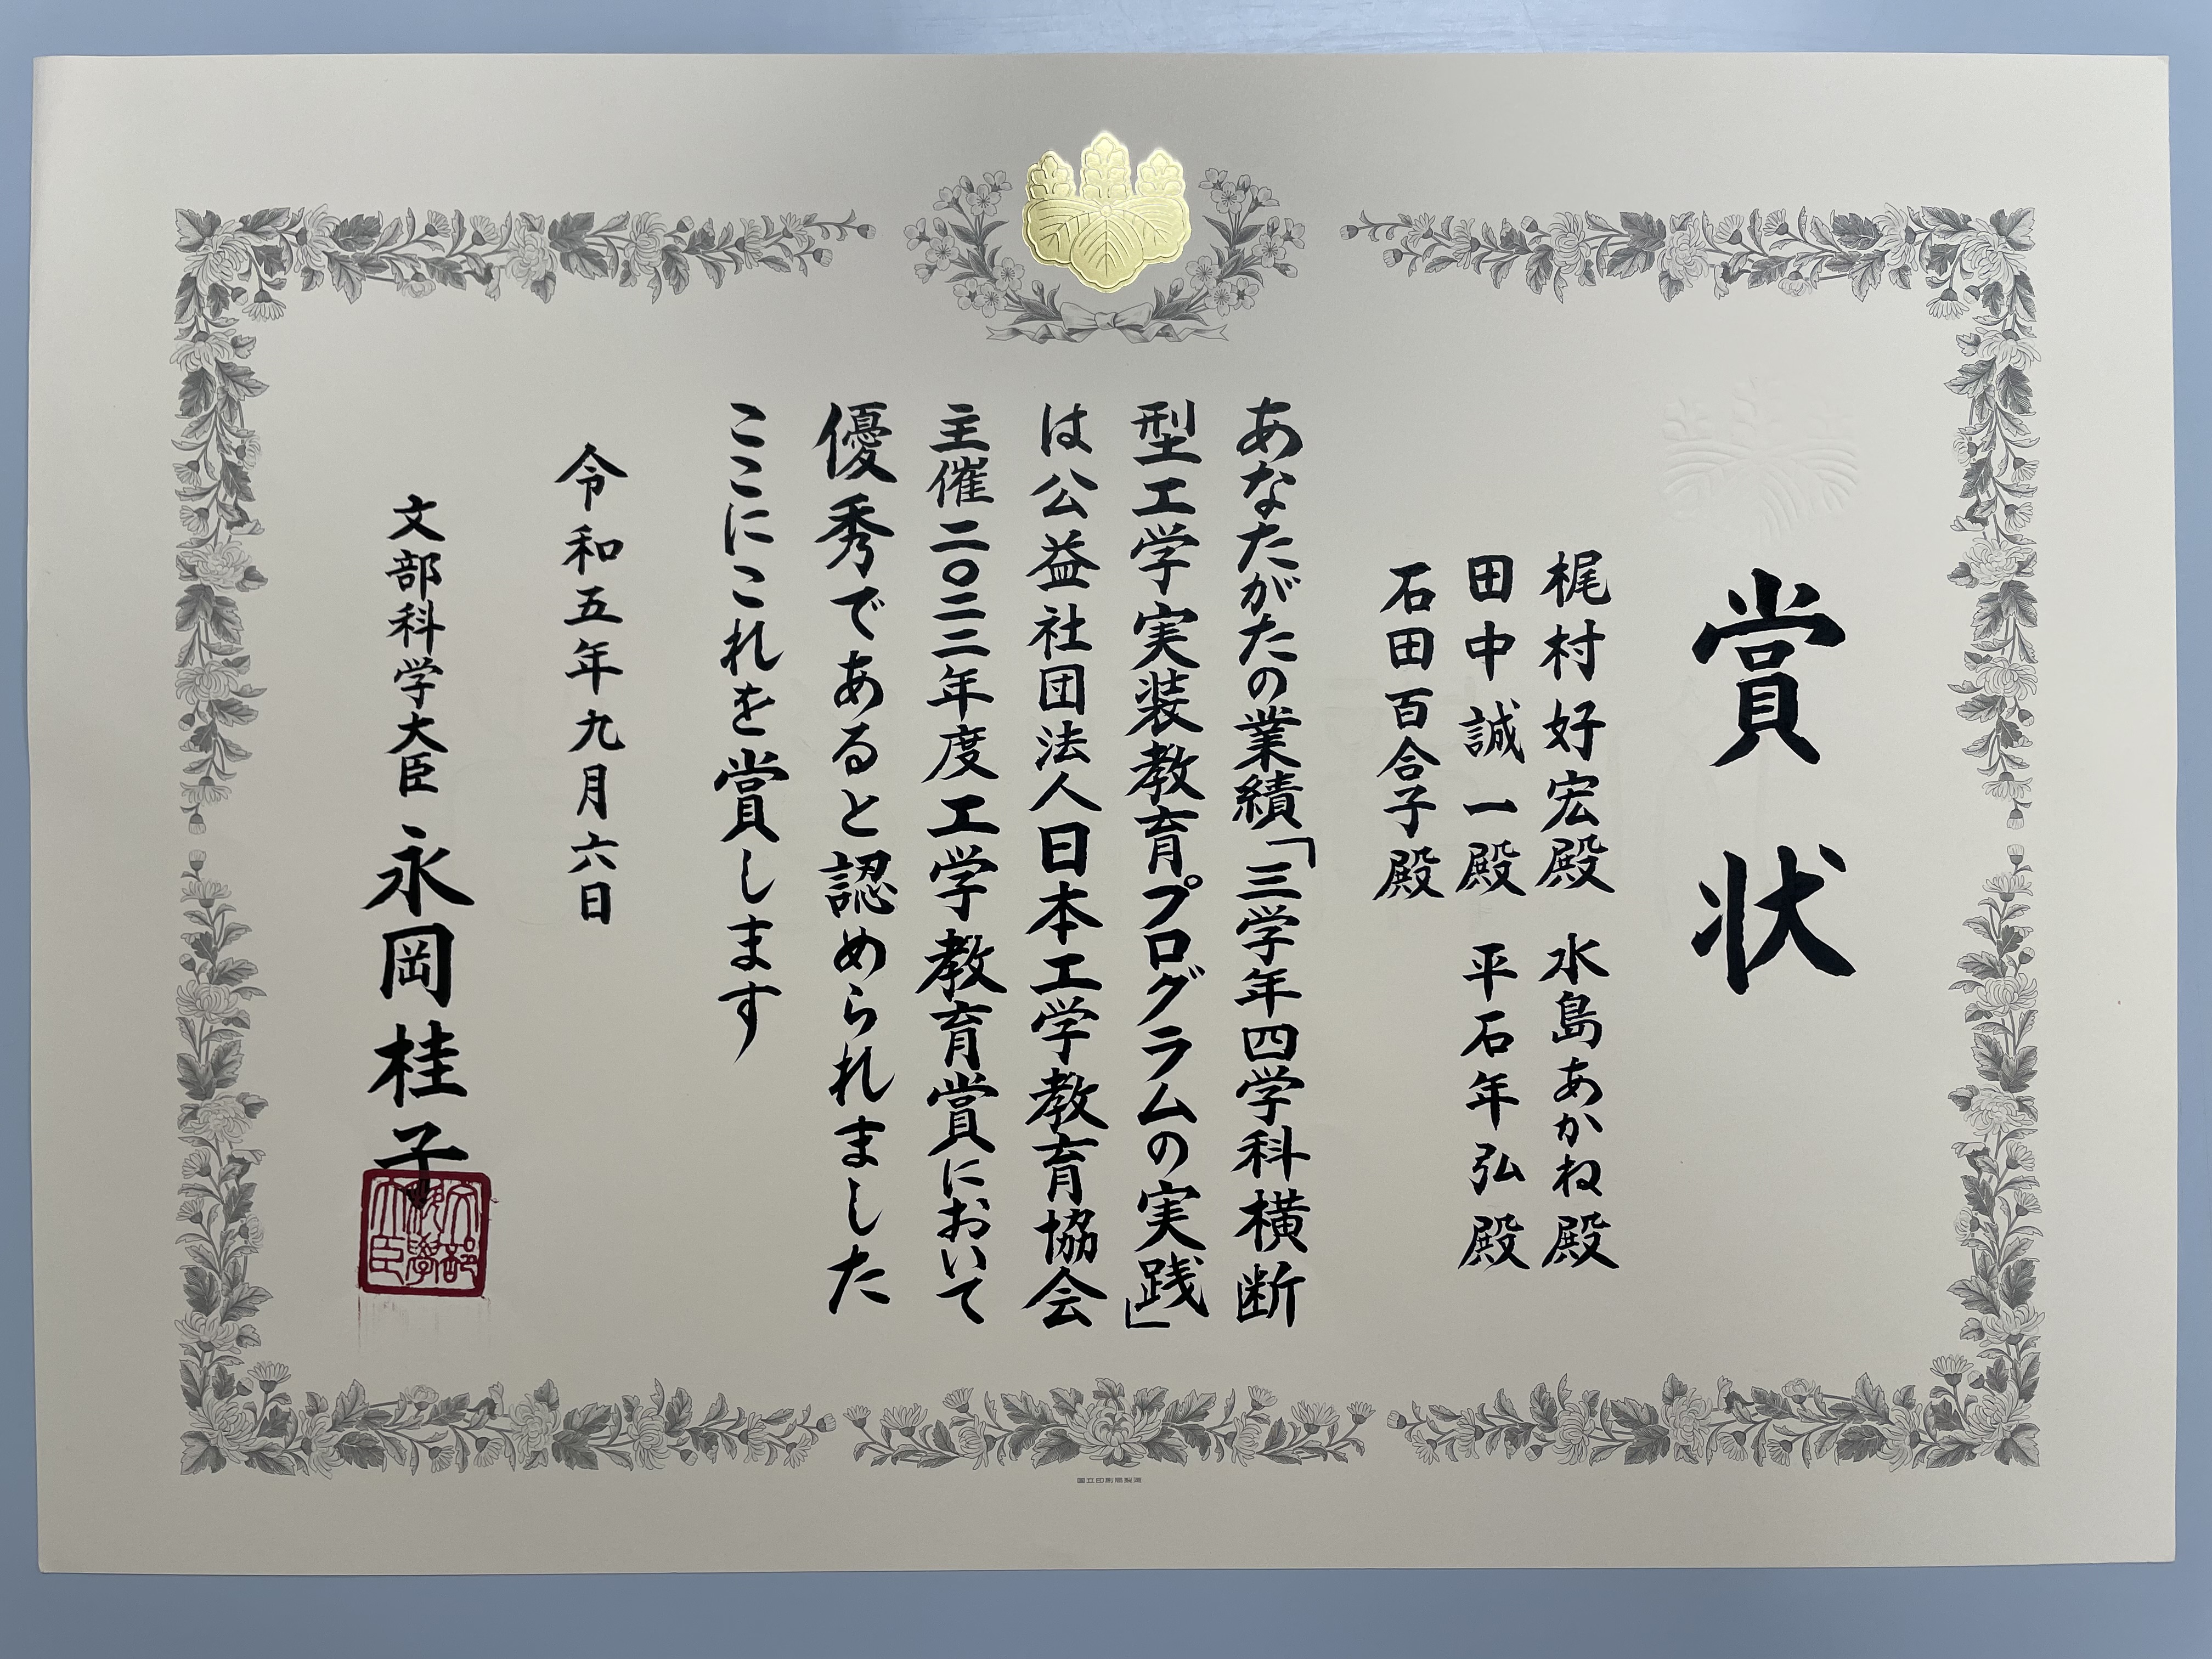 賞状
梶村好宏殿 水島あかね殿
田中誠一殿 平石年弘殿
石田百合子殿
あなたがたの業績「三学年四学科横断
型工学実装教育プログラムの実践」
は公益社団法人日本工学教育協会
主催二〇二二年度工学教育賞において
優秀であると認められました
ここにこれを賞します
令和五年九月六日
文部科学大臣 永岡桂子
文部科學大臣
国立印刷局製造